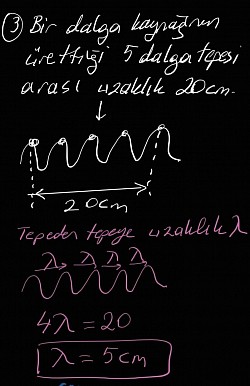 ③ Bir dalga kaynağının
ürettiği 5 dalga tepesi
arası uzaklık 20cm.
20cm
Tepeden tepeye uzaklık λ
λ λ λ λ
4λ = 20
λ = 5cm